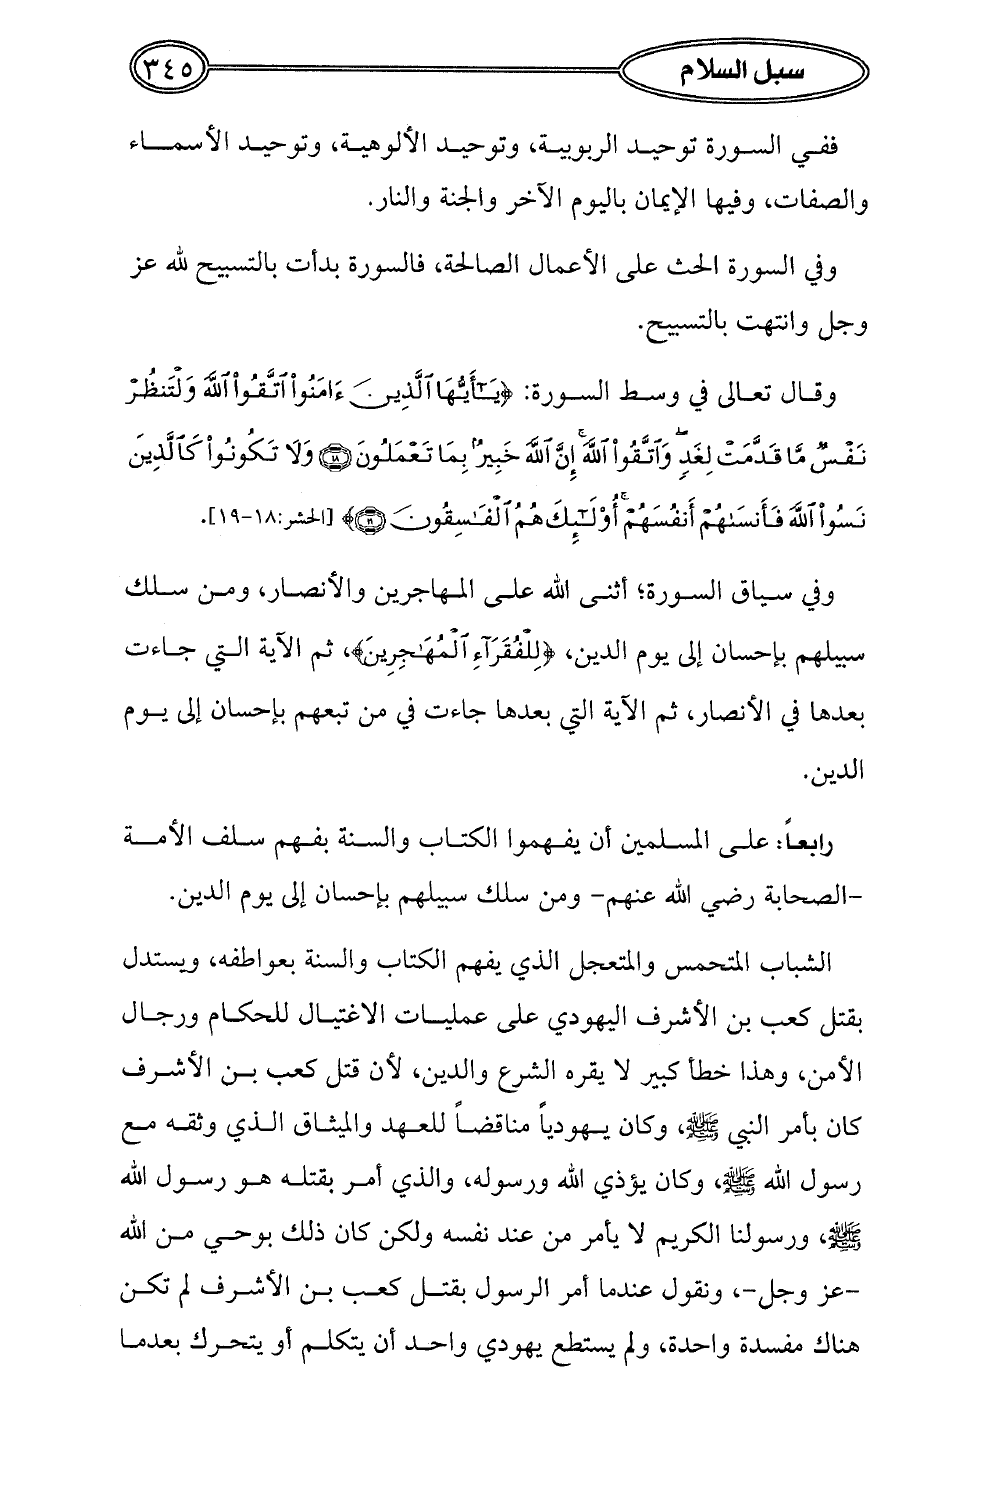 سبل السلام ٣٤٥
ففي السورة توحيد الربوبية، وتوحيد الألوهية، وتوحيد الأسماء
والصفات، وفيها الإيمان باليوم الآخر والجنة والنار.
وفي السورة الحث على الأعمال الصالحة، فالسورة بدأت بالتسبيح لله عز
وجل وانتهت بالتسبيح.
وقال تعالى في وسط السورة: ﴿يَـٰٓأَيُّهَا ٱلَّذِينَ ءَامَنُوا۟ ٱتَّقُوا۟ ٱللَّهَ وَلْتَنظُرْ
نَفْسٌ مَّا قَدَّمَتْ لِغَدٍ ۖ وَٱتَّقُوا۟ ٱللَّهَ ۚ إِنَّ ٱللَّهَ خَبِيرٌۢ بِمَا تَعْمَلُونَ ﴿١٨﴾ وَلَا تَكُونُوا۟ كَٱلَّذِينَ
نَسُوا۟ ٱللَّهَ فَأَنسَىٰهُمْ أَنفُسَهُمْ ۚ أُو۟لَـٰٓئِكَ هُمُ ٱلْفَـٰسِقُونَ ﴿١٩﴾﴾ [الحشر:١٨-١٩].
وفي سياق السورة؛ أثنى الله على المهاجرين والأنصار، ومن سلك
سبيلهم بإحسان إلى يوم الدين، ﴿لِلْفُقَرَآءِ ٱلْمُهَـٰجِرِينَ﴾، ثم الآية التي جاءت
بعدها في الأنصار، ثم الآية التي بعدها جاءت في من تبعهم بإحسان إلى يوم
الدين.
رابعاً: على المسلمين أن يفهموا الكتاب والسنة بفهم سلف الأمة
-الصحابة رضي الله عنهم- ومن سلك سبيلهم بإحسان إلى يوم الدين.
الشباب المتحمس والمتعجل الذي يفهم الكتاب والسنة بعواطفه، ويستدل
بقتل كعب بن الأشرف اليهودي على عمليات الاغتيال للحكام ورجال
الأمن، وهذا خطأ كبير لا يقره الشرع والدين، لأن قتل كعب بن الأشرف
كان بأمر النبي ﷺ، وكان يهودياً مناقضاً للعهد والميثاق الذي وثقه مع
رسول الله ﷺ، وكان يؤذي الله ورسوله، والذي أمر بقتله هو رسول الله
ﷺ، ورسولنا الكريم لا يأمر من عند نفسه ولكن كان ذلك بوحي من الله
-عز وجل-، ونقول عندما أمر الرسول بقتل كعب بن الأشرف لم تكن
هناك مفسدة واحدة، ولم يستطع يهودي واحد أن يتكلم أو يتحرك بعدما